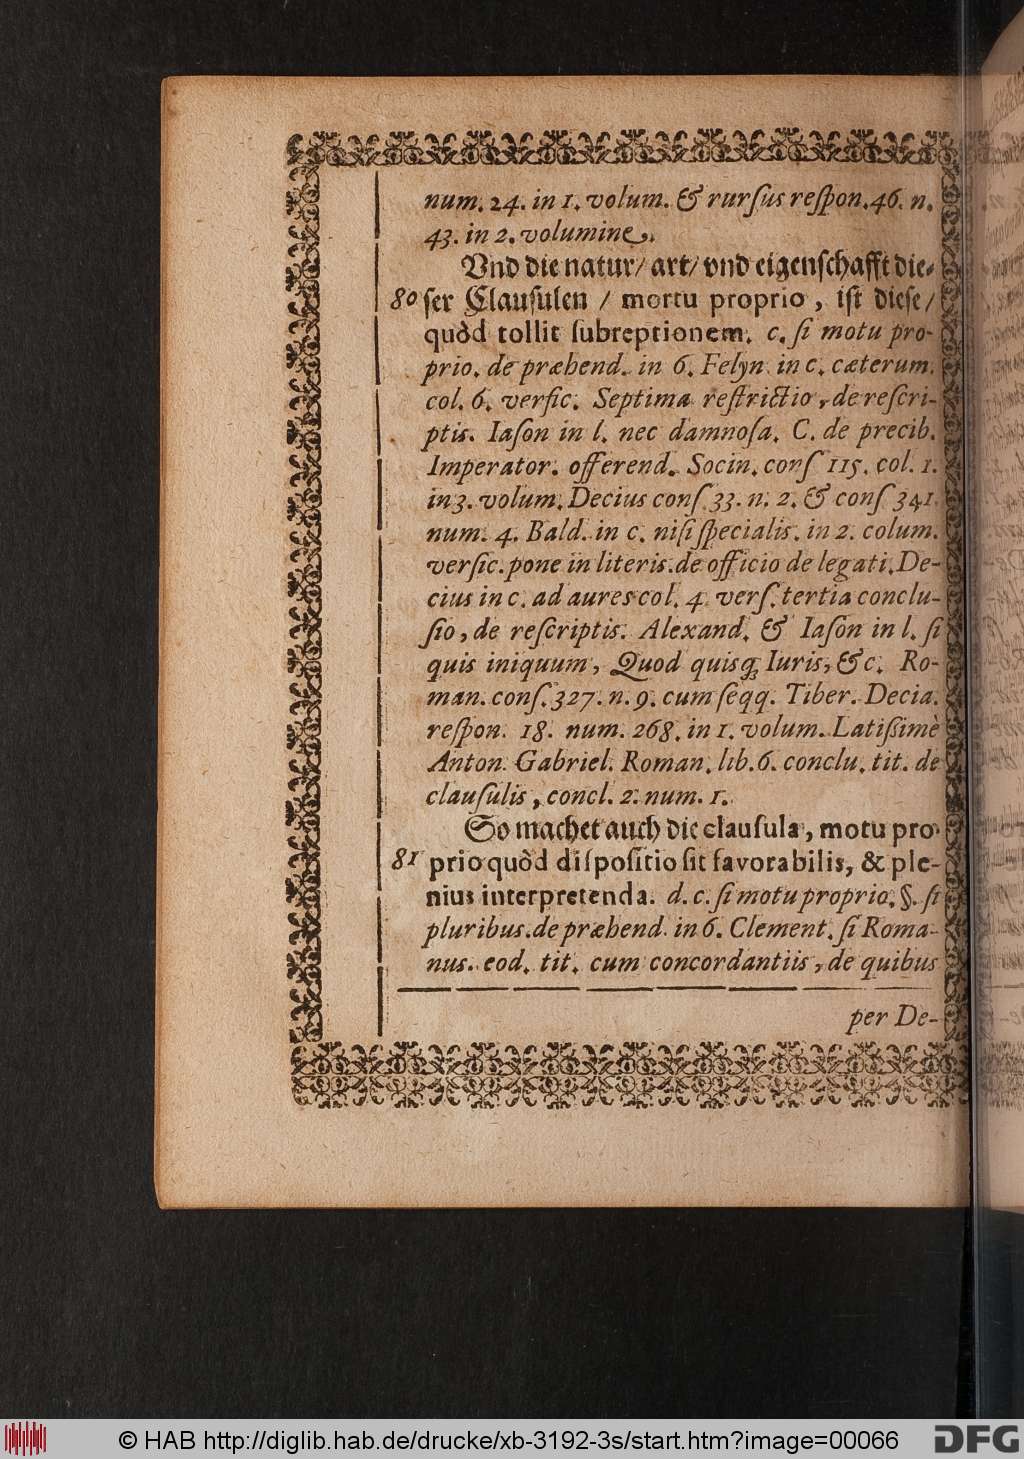 num. 24. in 1. volum. & rurſus reſpon. 46. n.
43. in 2. volumine.
Vnd die natur/ art/ vnd eigenſchafft die-
80 ſer Clauſulen / mortu proprio, iſt dieſe/
quòd tollit ſubreptionem. c. ſi motu pro-
prio. de præbend. in 6. Felyn. in c. cæterum.
col. 6. verſic. Septima reſtrictio, de reſcri-
ptis. Iaſon in l. nec damnoſa. C. de precib.
Imperator. offerend. Socin. conſ 115. col. 1.
in 3. volum. Decius conſ. 33. n. 2. & conſ 341.
num. 4. Bald. in c. niſi ſpecialis. in 2. colum.
verſic. pone in literis. de officio de legati. De-
cius in c. ad aures col. 4. verſ. tertia conclu-
ſio, de reſcriptis. Alexand. & Iaſon in l. ſi
quis iniquum, Quod quisq; Iuris, &c. Ro-
man. conſ. 327. n. 9. cum ſeqq. Tiber. Decia.
reſpon. 18. num. 268. in 1. volum. Latiſsimè
Anton. Gabriel. Roman. lib. 6. conclu. tit. de
clauſulis, concl. 2. num. 1.
So machet auch die clauſula, motu pro
81 prio quòd diſpoſitio ſit favorabilis, & ple-
nius interpretenda. d. c. ſi motu proprio. §. ſi
pluribus. de præbend. in 6. Clement. ſi Roma-
nus. eod. tit. cum concordantiis, de quibus
per De-
© HAB http://diglib.hab.de/drucke/xb-3192-3s/start.htm?image=00066
DFG